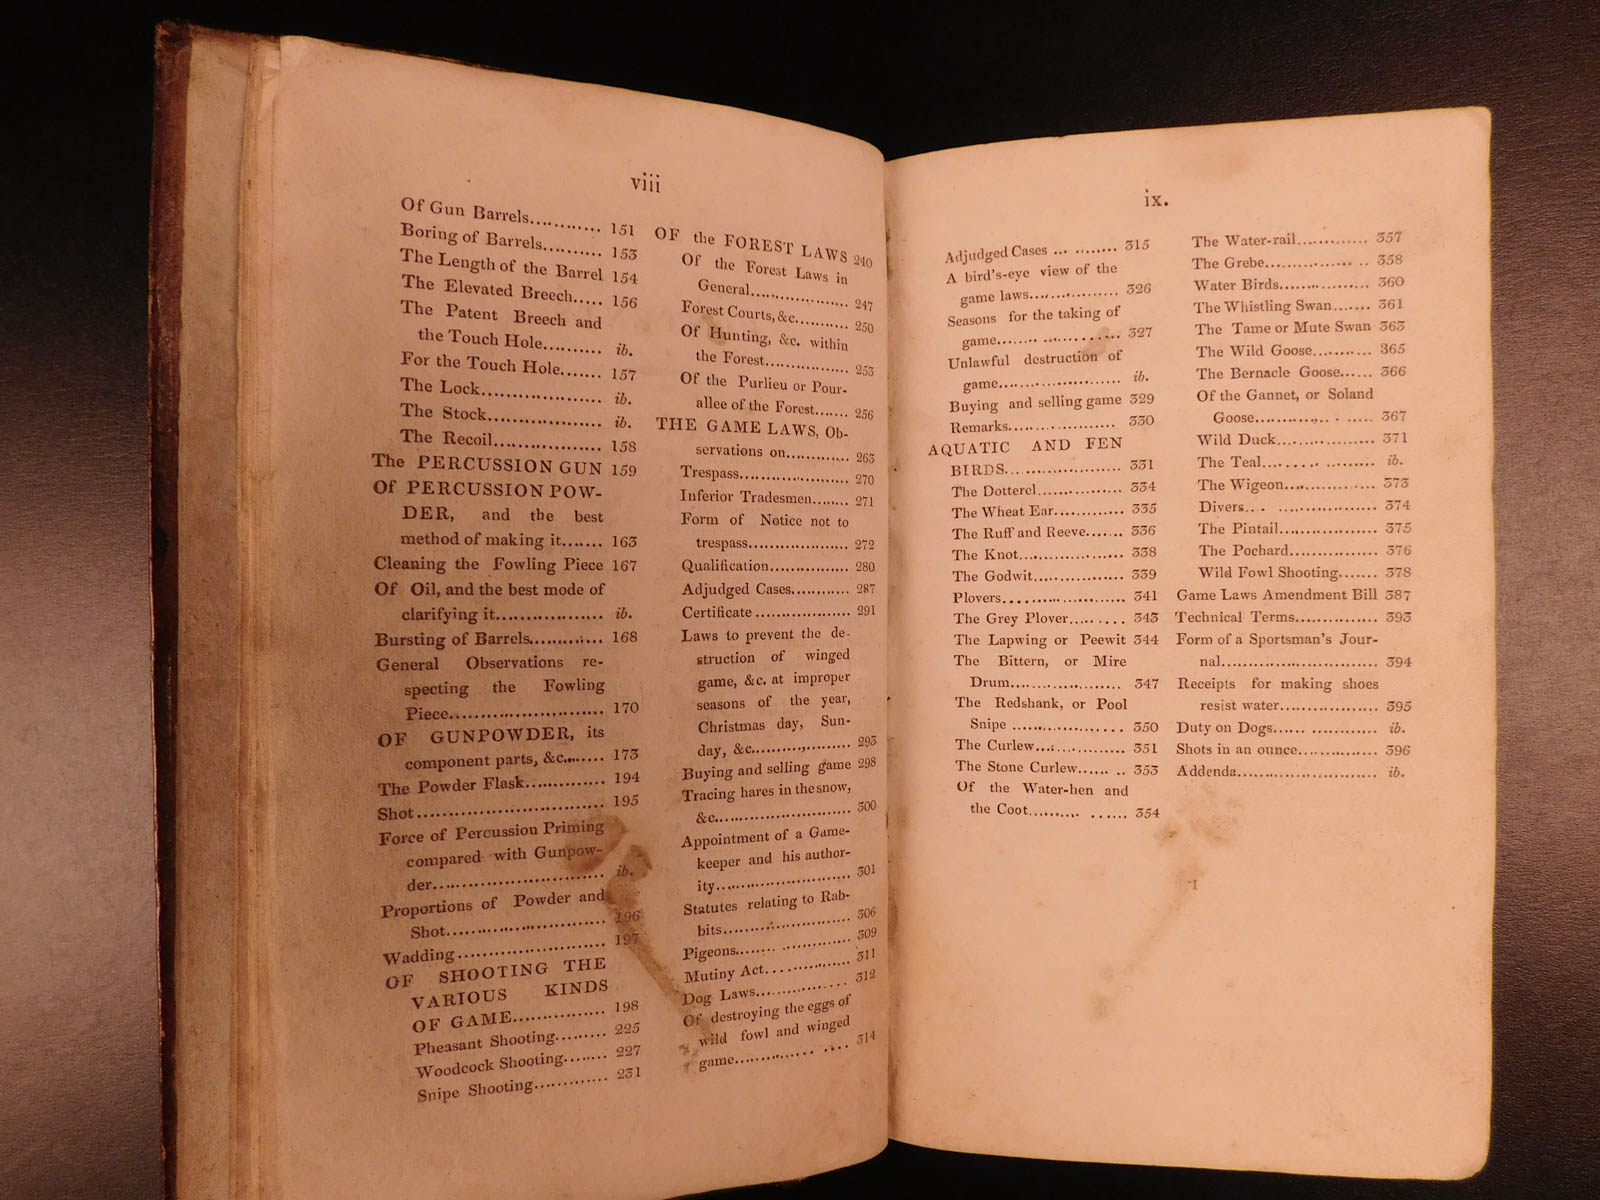 viii
Of Gun Barrels............ 151
Boring of Barrels.......... 153
The Length of the Barrel 154
The Elevated Breech..... 156
The Patent Breech and
the Touch Hole.......... ib.
For the Touch Hole....... 157
The Lock..................... ib.
The Stock.................... ib.
The Recoil................... 158
The PERCUSSION GUN 159
Of PERCUSSION POW-
DER, and the best
method of making it....... 163
Cleaning the Fowling Piece 167
Of Oil, and the best mode of
clarifying it................... ib.
Bursting of Barrels............ 168
General Observations re-
specting the Fowling
Piece........................... 170
OF GUNPOWDER, its
component parts, &c....... 173
The Powder Flask............. 194
Shot .............................. 195
Force of Percussion Priming
compared with Gunpow-
der.............................. ib.
Proportions of Powder and
Shot............................ 196
Wadding ......................... 197
OF SHOOTING THE
VARIOUS KINDS
OF GAME................ 198
Pheasant Shooting......... 225
Woodcock Shooting........ 227
Snipe Shooting............. 231
OF the FOREST LAWS 240
Of the Forest Laws in
General................... 247
Forest Courts, &c.......... 250
Of Hunting, &c. within
the Forest................. 253
Of the Purlieu or Pour-
allee of the Forest....... 256
THE GAME LAWS, Ob-
servations on............. 263
Trespass...................... 270
Inferior Tradesmen........ 271
Form of Notice not to
trespass.................... 272
Qualification................ 280
Adjudged Cases............ 287
Certificate ................... 291
Laws to prevent the de-
struction of winged
game, &c. at improper
seasons of the year,
Christmas day, Sun-
day, &c................... 293
Buying and selling game 298
Tracing hares in the snow,
&c.......................... 300
Appointment of a Game-
keeper and his author-
ity........................... 301
Statutes relating to Rab-
bits......................... 306
Pigeons....................... 309
Mutiny Act.................. 311
Dog Laws.................... 312
Of destroying the eggs of
wild fowl and winged
game....................... 314
ix.
Adjudged Cases ... .......... 315
A bird's-eye view of the
game laws................. 326
Seasons for the taking of
game....................... 327
Unlawful destruction of
game....................... ib.
Buying and selling game 329
Remarks..................... 330
AQUATIC AND FEN
BIRDS...................... 331
The Dotterel................ 334
The Wheat Ear............. 335
The Ruff and Reeve....... 336
The Knot.................... 338
The Godwit................. 339
Plovers....................... 341
The Grey Plover........... 343
The Lapwing or Peewit 344
The Bittern, or Mire
Drum...................... 347
The Redshank, or Pool
Snipe ...................... 350
The Curlew................. 351
The Stone Curlew...... .. 353
Of the Water-hen and
the Coot......... ...... 354
The Water-rail............. 357
The Grebe................ .. 358
Water Birds............... 360
The Whistling Swan....... 361
The Tame or Mute Swan 363
The Wild Goose........... 365
The Bernacle Goose...... 366
Of the Gannet, or Soland
Goose..................... 367
Wild Duck................. 371
The Teal.................... ib.
The Wigeon................ 373
Divers.... .................... 374
The Pintail................. 375
The Pochard............... 376
Wild Fowl Shooting....... 378
Game Laws Amendment Bill 387
Technical Terms.............. 393
Form of a Sportsman's Jour-
nal............................ 394
Receipts for making shoes
resist water.................. 395
Duty on Dogs...... ............ ib.
Shots in an ounce.............. 396
Addenda........................ ib.